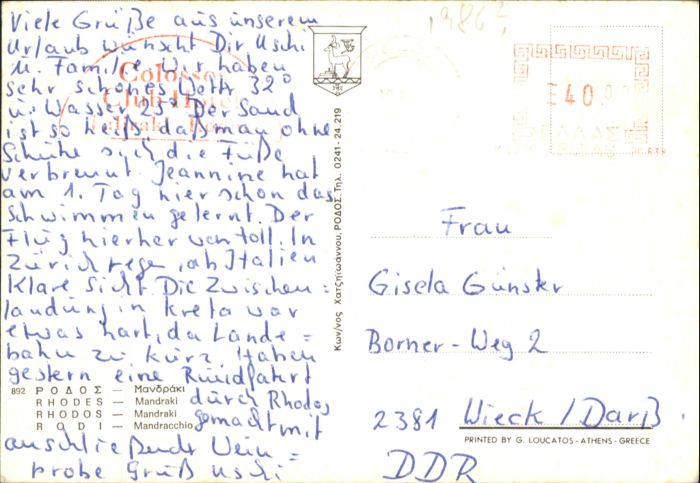 Viele Grüße aus unserem
Urlaub wünscht Dir Uschi
u. Familie. Wir haben
sehr schönes Wettr 32°
u. Wasser 23° Der Sand
ist so heiß, daß man ohne
Schuhe sich die Füße
verbrennt. Jeannine hat
am 1. Tag hier schon das
Schwimmen gelernt. Der
Flug hierher war toll. In
Zürich rege, ab Italien
Klare Sicht. Die Zwischen=
landung in Kreta war
etwas hart, da Lande=
bahn zu kurz. Haben
gestern eine Rundfahrt
durch Rhodos
gemacht mit
anschließender Wein=
probe Gruß Uschi
892 ΡΟΔΟΣ — Μανδράκι
RHODES — Mandraki
RHODOS — Mandraki
RODI — Mandracchio
Colossos
Club Hotel
Κων/νος Χατζηιωάννου, ΡΟΔΟΣ, Τηλ. 0241 - 24.219
1986?
40.00
ΕΛΛΑΣ
Frau
Gisela Günster
Borner-Weg 2
2381 Wieck/Darß.
DDR
PRINTED BY G. LOUCATOS - ATHENS - GREECE